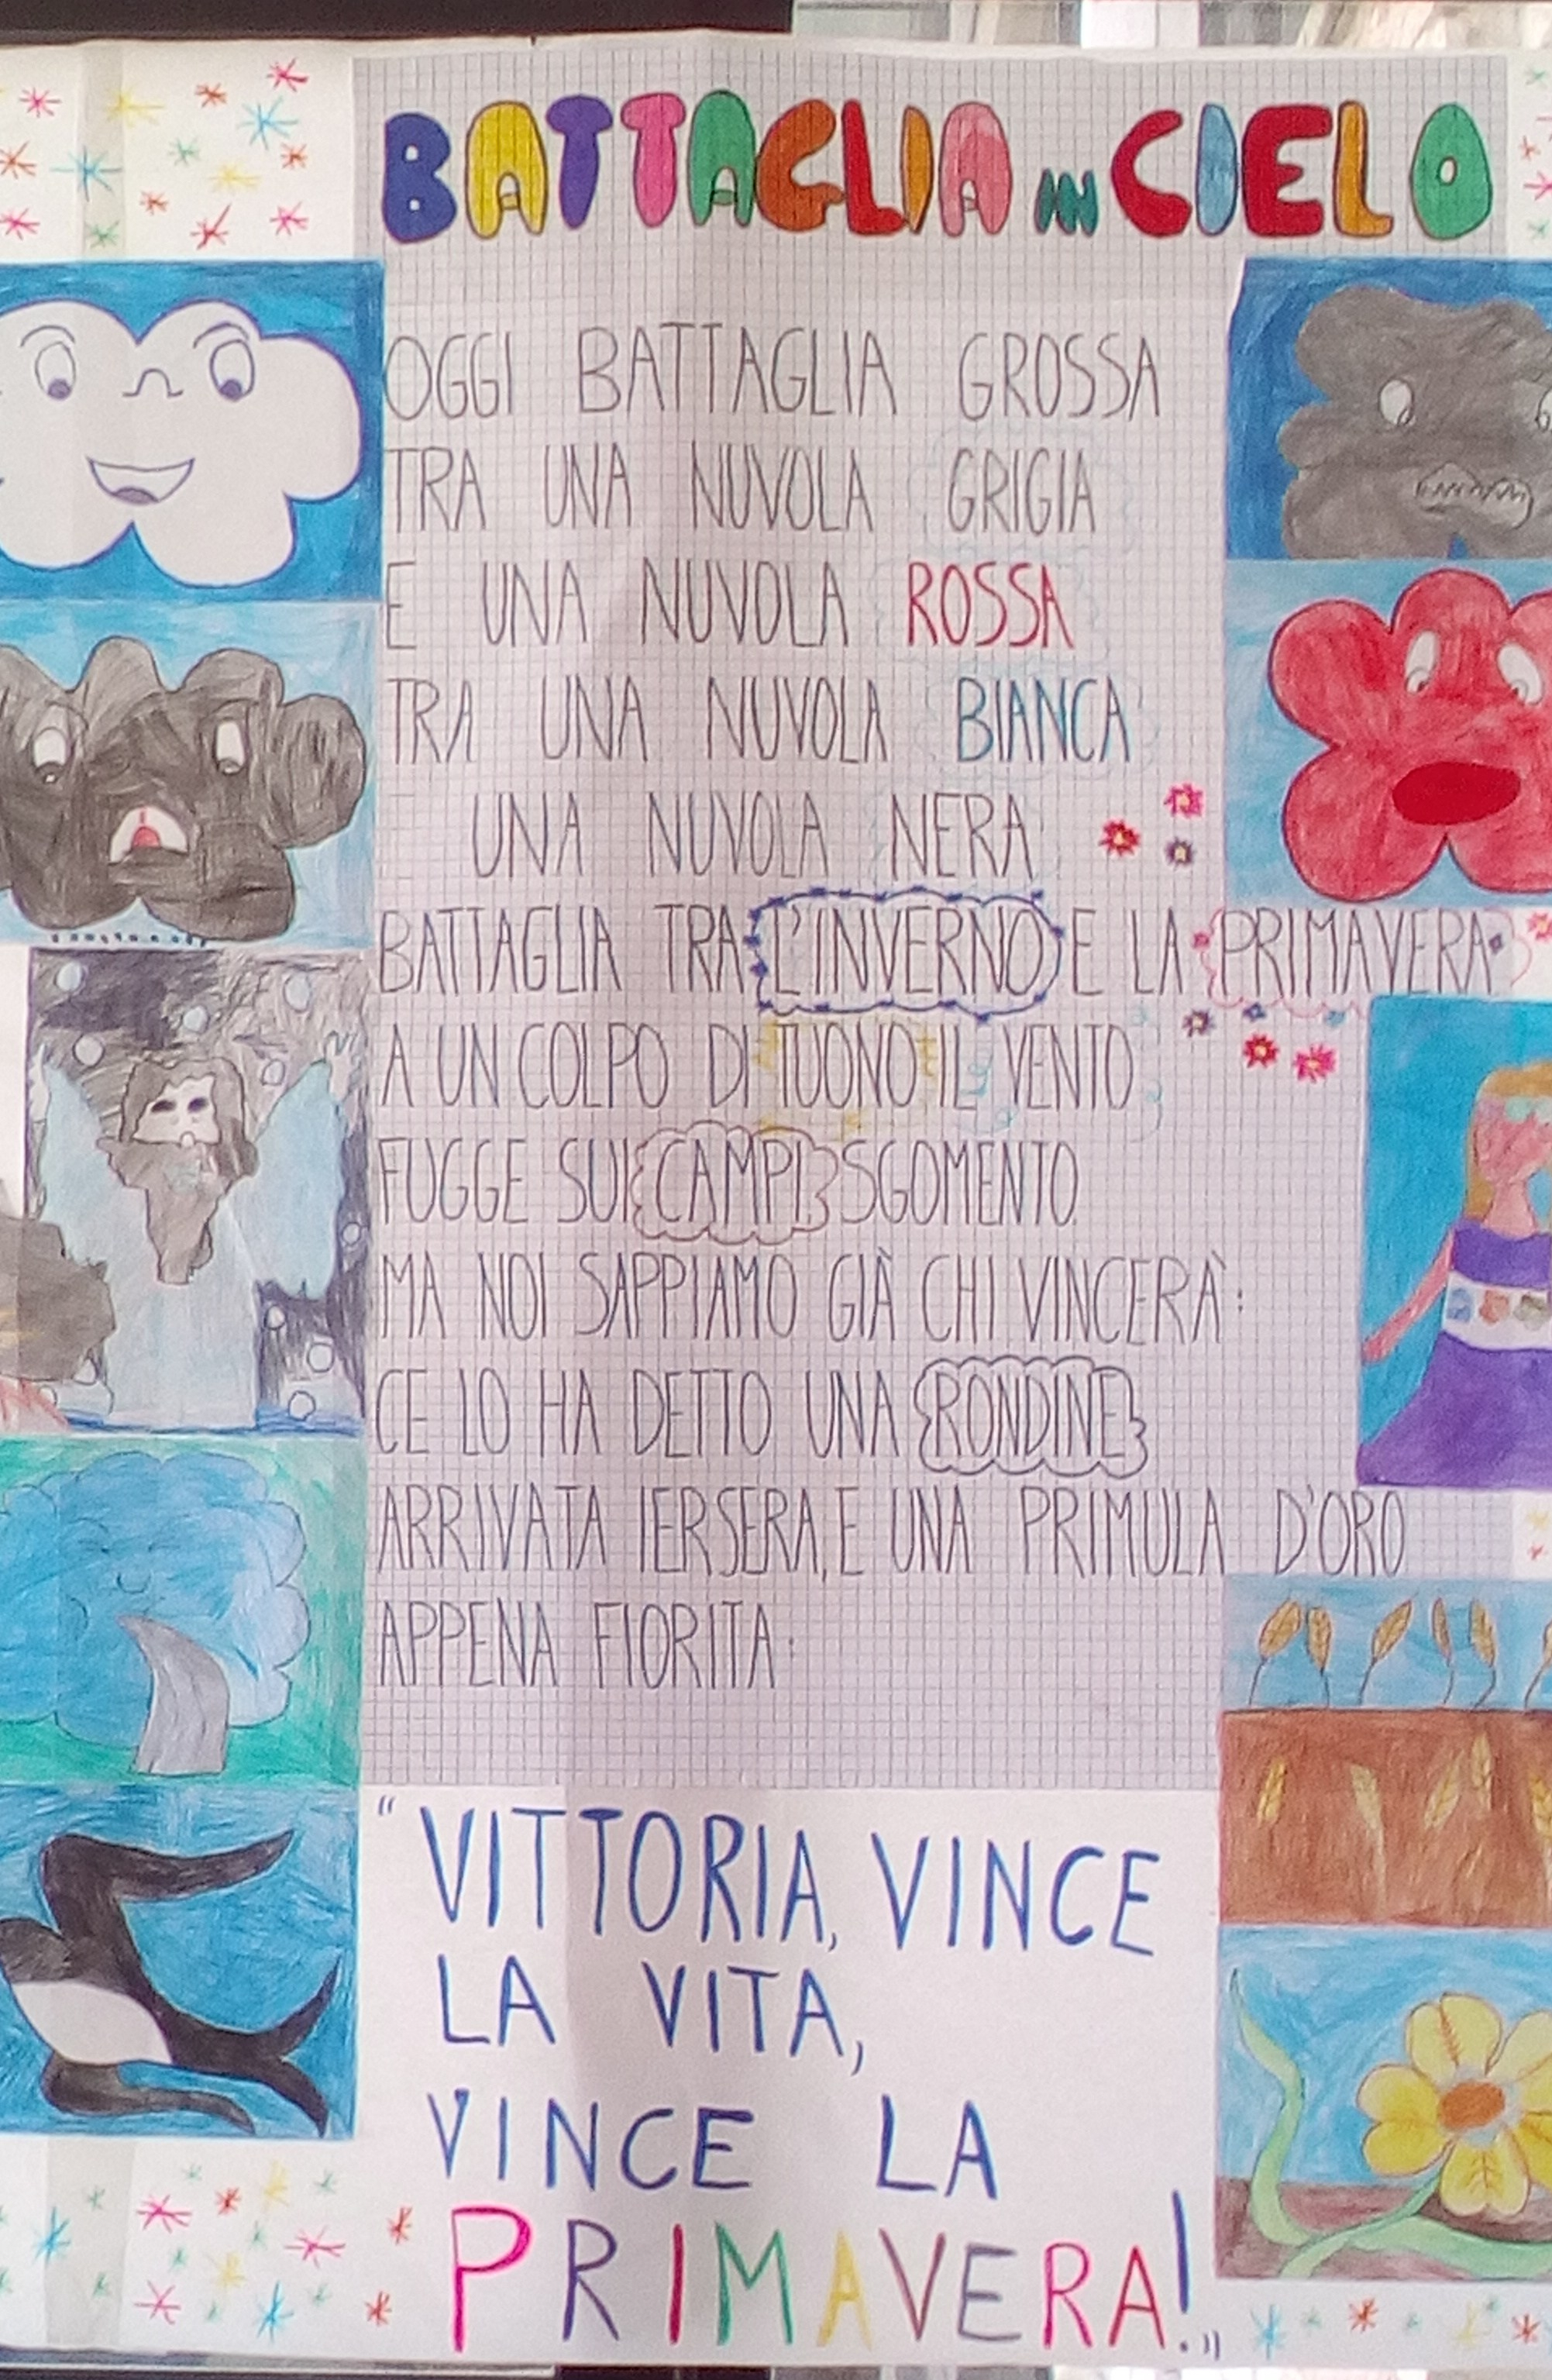 BATTAGLIA IN CIELO
OGGI BATTAGLIA GROSSA
TRA UNA NUVOLA GRIGIA
E UNA NUVOLA ROSSA
TRA UNA NUVOLA BIANCA
E UNA NUVOLA NERA
BATTAGLIA TRA L'INVERNO E LA PRIMAVERA
A UN COLPO DI TUONO IL VENTO
FUGGE SUI CAMPI SGOMENTO.
MA NOI SAPPIAMO GIÀ CHI VINCERÀ:
CE LO HA DETTO UNA RONDINE
ARRIVATA IERSERA, E UNA PRIMULA D'ORO
APPENA FIORITA:
“VITTORIA, VINCE
LA VITA,
VINCE LA
PRIMAVERA!„